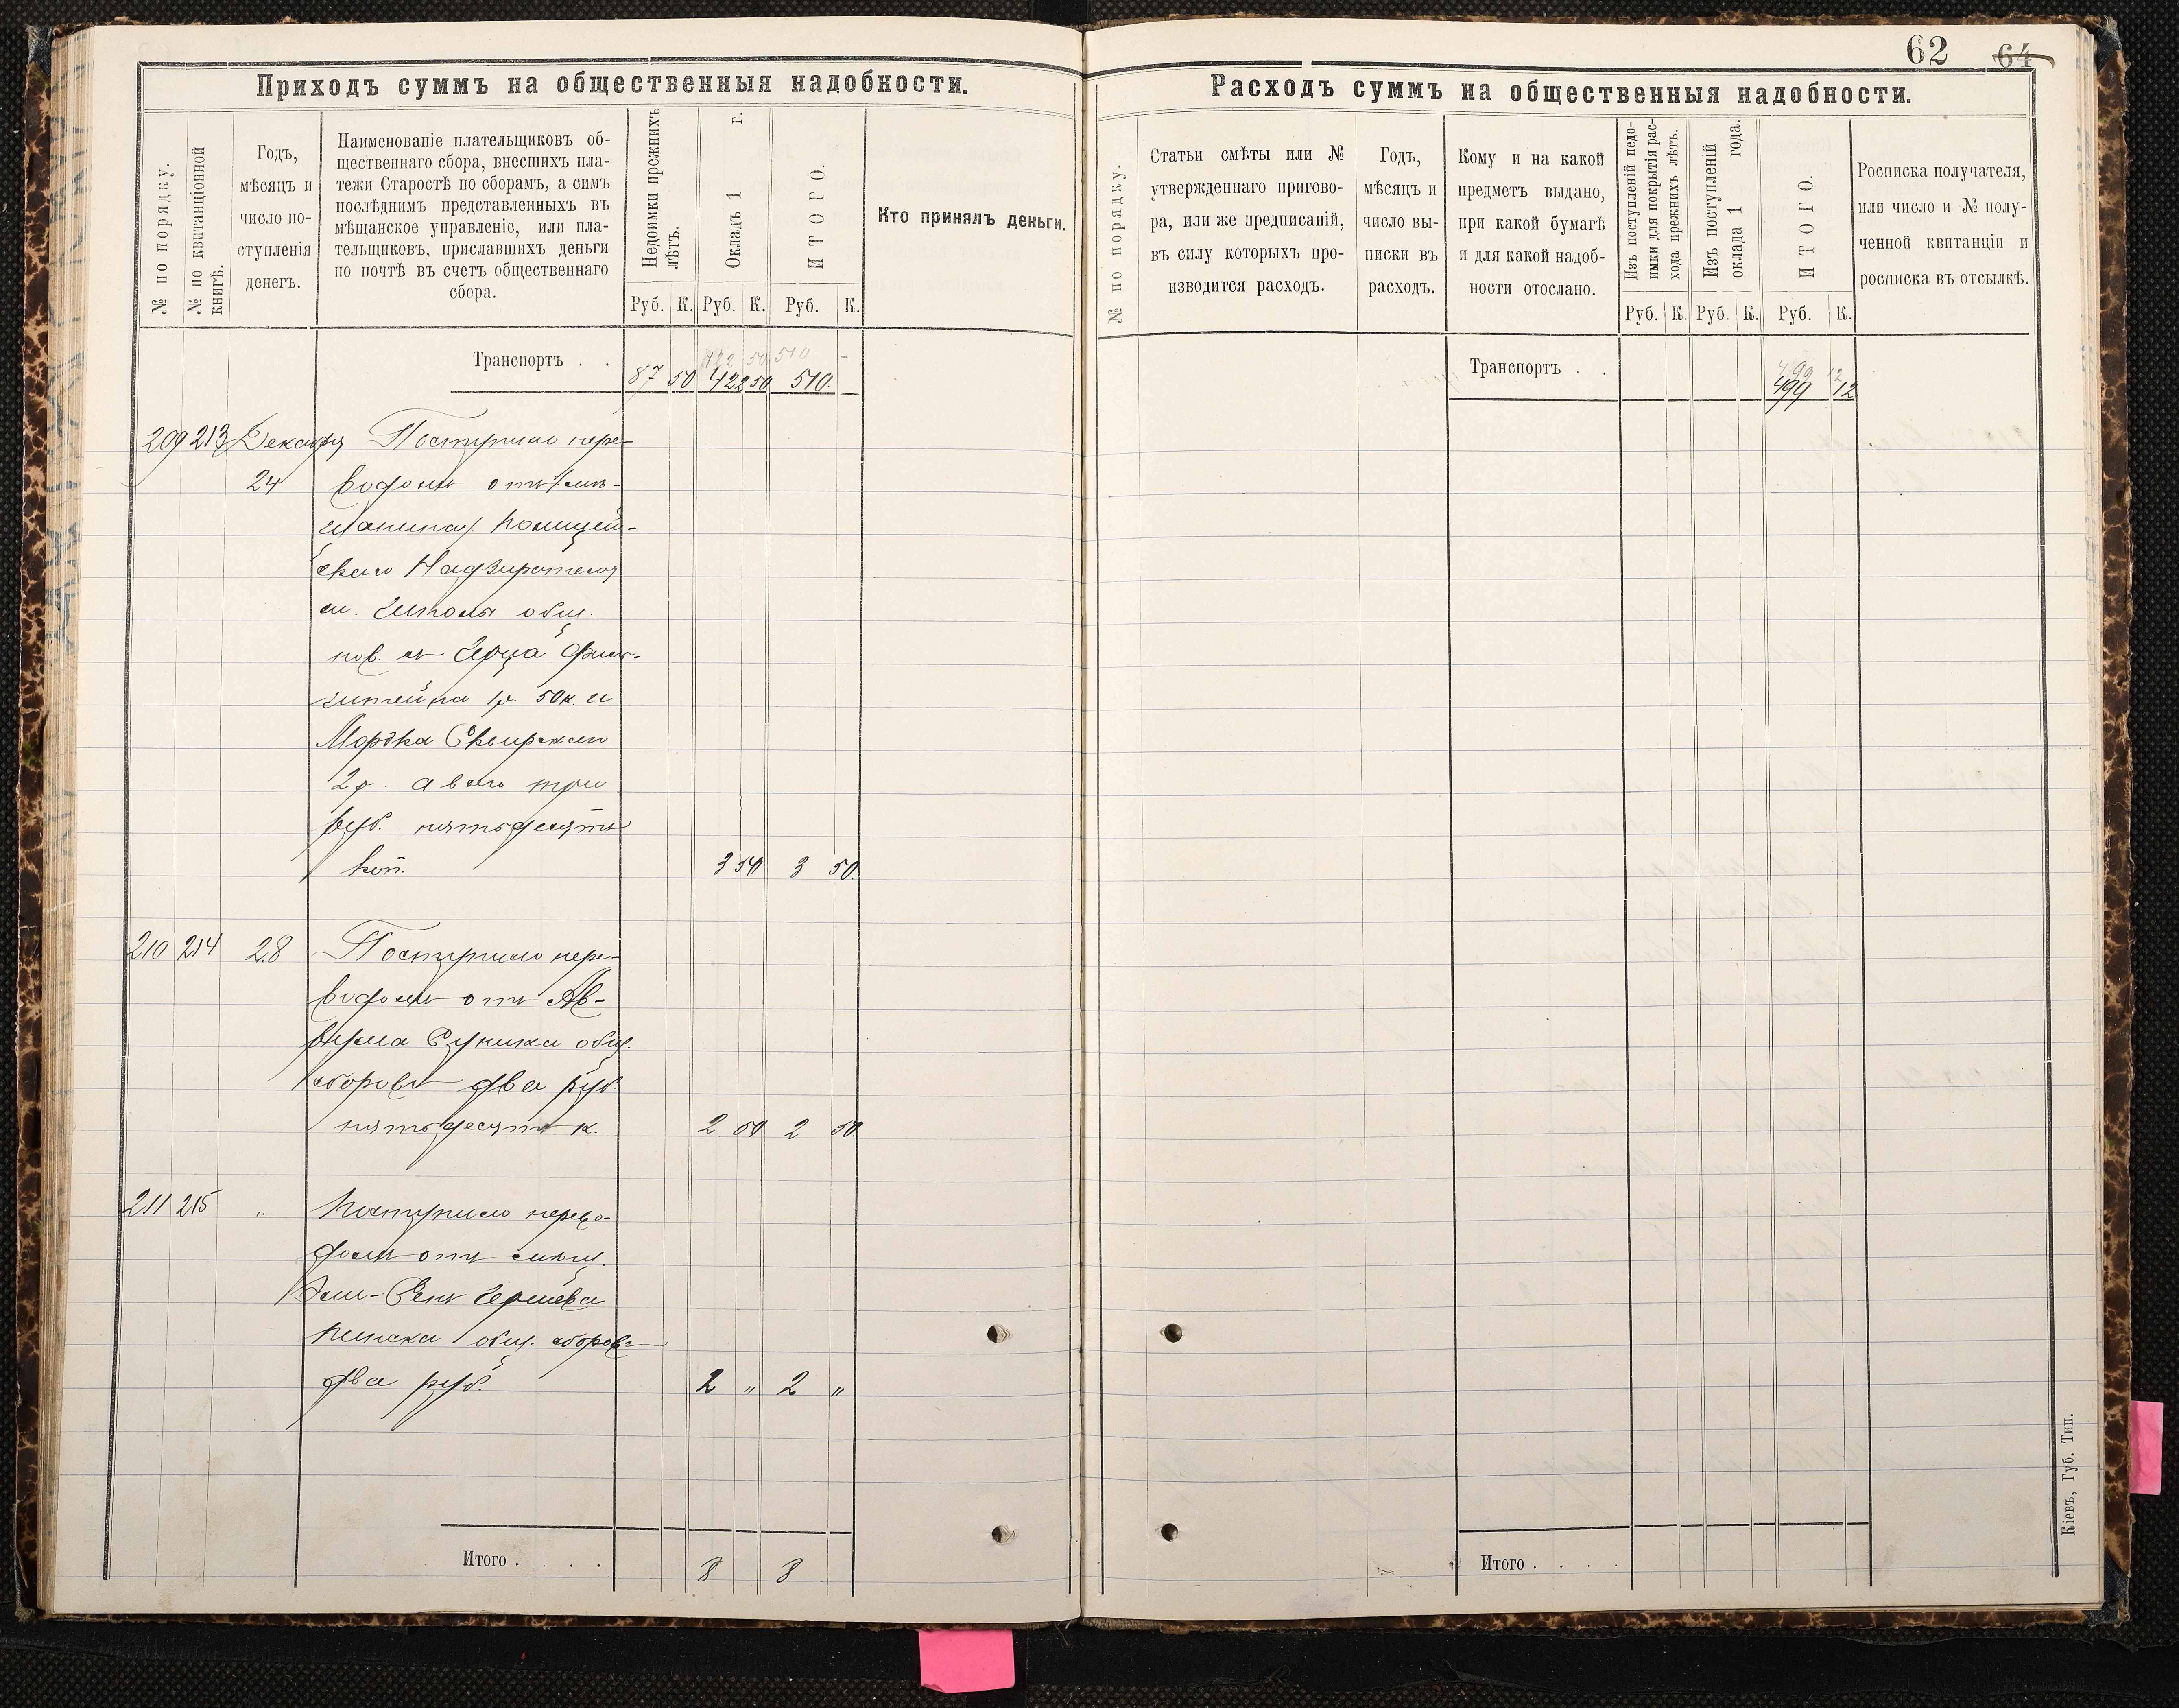 62 64
Приходъ суммъ на общественныя надобности.
№ по порядку.
№ по квитанціонной
книгѣ.
Годъ,
мѣсяцъ и
число по-
ступленія
денегъ.
Наименованіе плательщиковъ об-
щественнаго сбора, внесшихъ пла-
тежи Старостѣ по сборамъ, а симъ
послѣднимъ представленныхъ въ
мѣщанское управленіе, или пла-
тельщиковъ, приславшихъ деньги
по почтѣ въ счетъ общественнаго
сбора.
Недоимки прежнихъ
лѣтъ.
Окладъ 1 г.
ИТОГО.
Руб. К. Руб. К. Руб. К.
Кто принялъ деньги.
422 50 510 -
Транспортъ . . 87 50 422 50 510. -
209 213 Декабря Поступило пере-
24 водомъ отъ
щанина Полицей-
скаго Надзирателя
м. общ.
пов. съ Фин-
штейна 1р. 50к. и
Мордка Сквирскаго
2р. а всего три
руб. пятьдесятъ
коп. 3 50 3 50.
210 214 28 Поступило пере-
водомъ отъ Ав-
рума общ.
сборовъ два руб.
пятьдесятъ к. 2 50 2 50.
211 215 „ Поступило перево-
домъ отъ мѣщ.
Пинска общ. сборовъ
два руб. 2 „ 2 „
Итого . . . . 8 8
Расходъ суммъ на общественныя надобности.
№ по порядку.
Статьи смѣты или №
утвержденнаго пригово-
ра, или же предписаній,
въ силу которыхъ про-
изводится расходъ.
Годъ,
мѣсяцъ и
число вы-
писки въ
расходъ.
Кому и на какой
предметъ выдано,
при какой бумагѣ
и для какой надоб-
ности отослано.
Изъ поступленій недо-
имки для покрытія рас-
хода прежнихъ лѣтъ.
Изъ поступленій
оклада 1 года.
ИТОГО.
Руб. К. Руб. К. Руб. К.
Росписка получателя,
или число и № полу-
ченной квитанціи и
росписка въ отсылкѣ.
499 12
Транспортъ . . 499 12
Итого . . . .
Кіевъ, Губ. Тип.